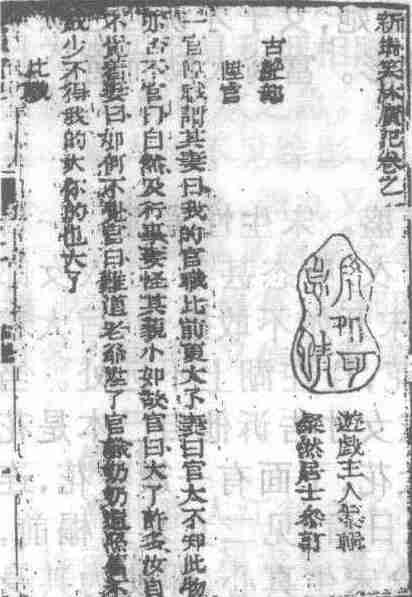 新鐫笑林廣記卷之一
遊戲主人纂輯
粲然居士參訂
古艷部
陞官
一官陞職謂其妻曰我的官職比前更大了妻曰官大不知此物
亦大不官曰自然及行事妻怪其藐小如故官曰大了許多汝自
不覺着妻曰如何不覺官曰難道老爺陞了官職奶奶還照舊不
成少不得我的大你的也大了
比職